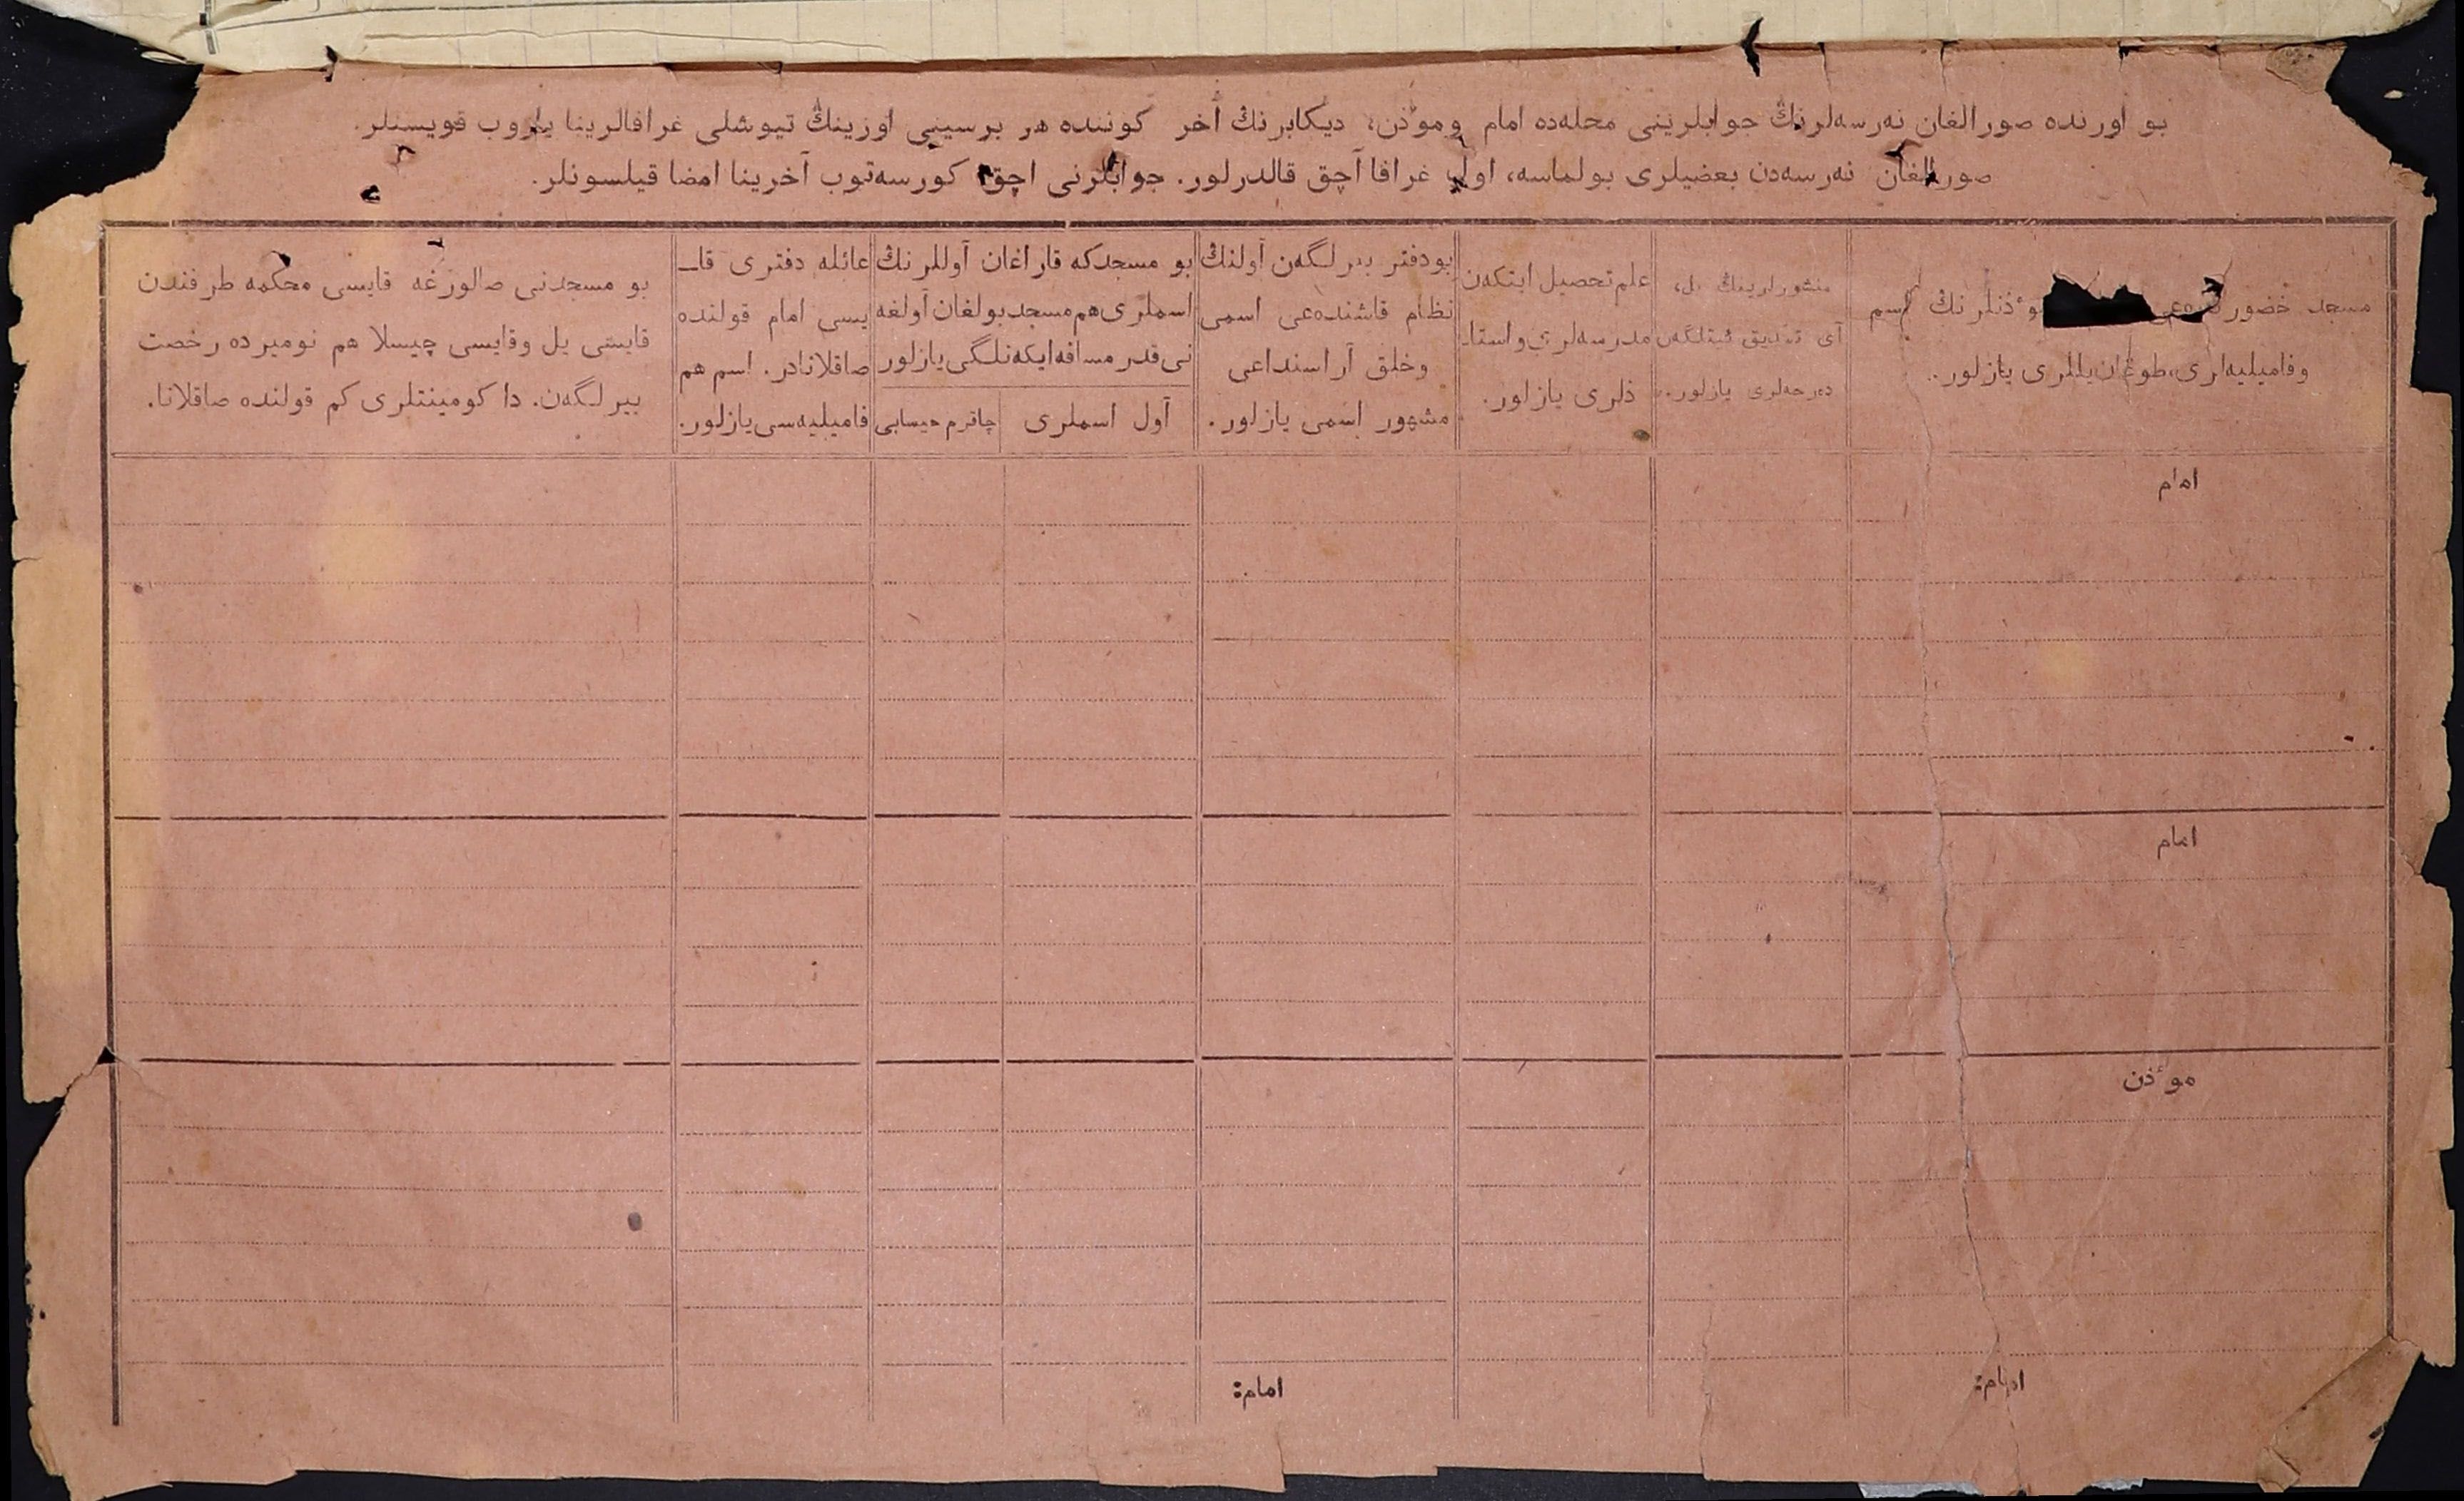 بو اورنده صورالغان نەرسەلرنڭ جوابلرینی محلەده امام وموٴذن، دیکابرنڭ آخر کوننده هر برسیبی اوزینڭ تیوشلی غرافالرینا یازوب قویسنلر.
صورالغان نەرسەدن بعضیلری بولماسە، اول غرافا آچق قالدرلور. جوابلرنی اچق کورسەتوب آخرینا امضا قیلسونلر.
مسجد خضور موٴذنلرنڭ اسم
وفامیلیەلری، طوغان یللری یازلور.
منشورلرینڭ یل،
آی تصدیق ئیتلگەن
دەرجەلری یازلور.
علم تحصیل ایتکەن
مدرسەلری واستا-
ذلری یازلور.
بو دفتر بیرلگەن آولنڭ
نظام قاشندەعی اسمی
وخلق آراسنداعی
مشهور اسمی یازلور.
بو مسجدکە قاراغان آوللرنڭ
اسملری هم مسجد بولغان آولغە
نی قدر مسافە ایکەنلگی یازلور
آول اسملری
چاقرم حیسابی
عائلە دفتری قا-
یسی امام قولنده
صاقلانادر. اسم هم
فامیلیەسی یازلور.
بو مسجدنی صالورغە قایسی محکمە طرفندن
قایسی یل وقایسی چیسلا هم نومیرده رخصت
بیرلگەن. داکومینتلری کم قولنده صاقلانا.
امام
امام
موٴذن
امام:
امام: